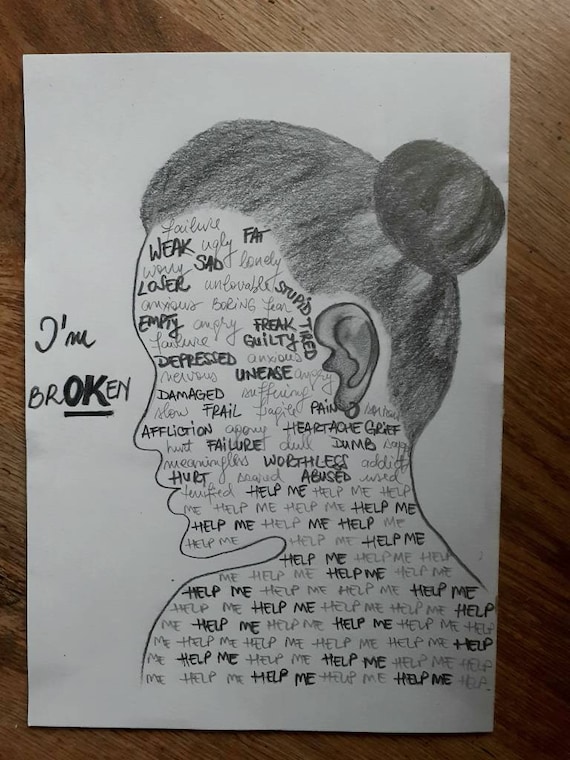 I'm
BROKEN
failure
WEAK ugly FAT
worry SAD lonely
LOSER unlovable STUPID
anxious BORING fear
EMPTY angry FREAK TIRED
failure GUILTY
DEPRESSED anxious
nervous UNEASE angry
DAMAGED suffering
slow FRAIL fragile PAIN
AFFLICTION agony HEARTACHE GRIEF
hurt FAILURE dull DUMB
meaningless WORTHLESS addict
HURT scared ABUSED used
terrified HELP ME HELP ME HELP
ME HELP ME HELP ME HELP ME
HELP ME HELP ME HELP ME
HELP ME HELP ME HELP ME
HELP ME HELP ME HELP
ME HELP ME HELP ME HELP ME
HELP ME HELP ME HELP ME HELP ME
HELP ME HELP ME HELP ME HELP ME HELP
ME HELP ME HELP ME HELP ME HELP ME HELP
ME HELP ME HELP ME HELP ME HELP ME HELP
ME HELP ME HELP ME HELP ME HELP ME HELP
ME HELP ME HELP ME HELP ME HELP ME HELP